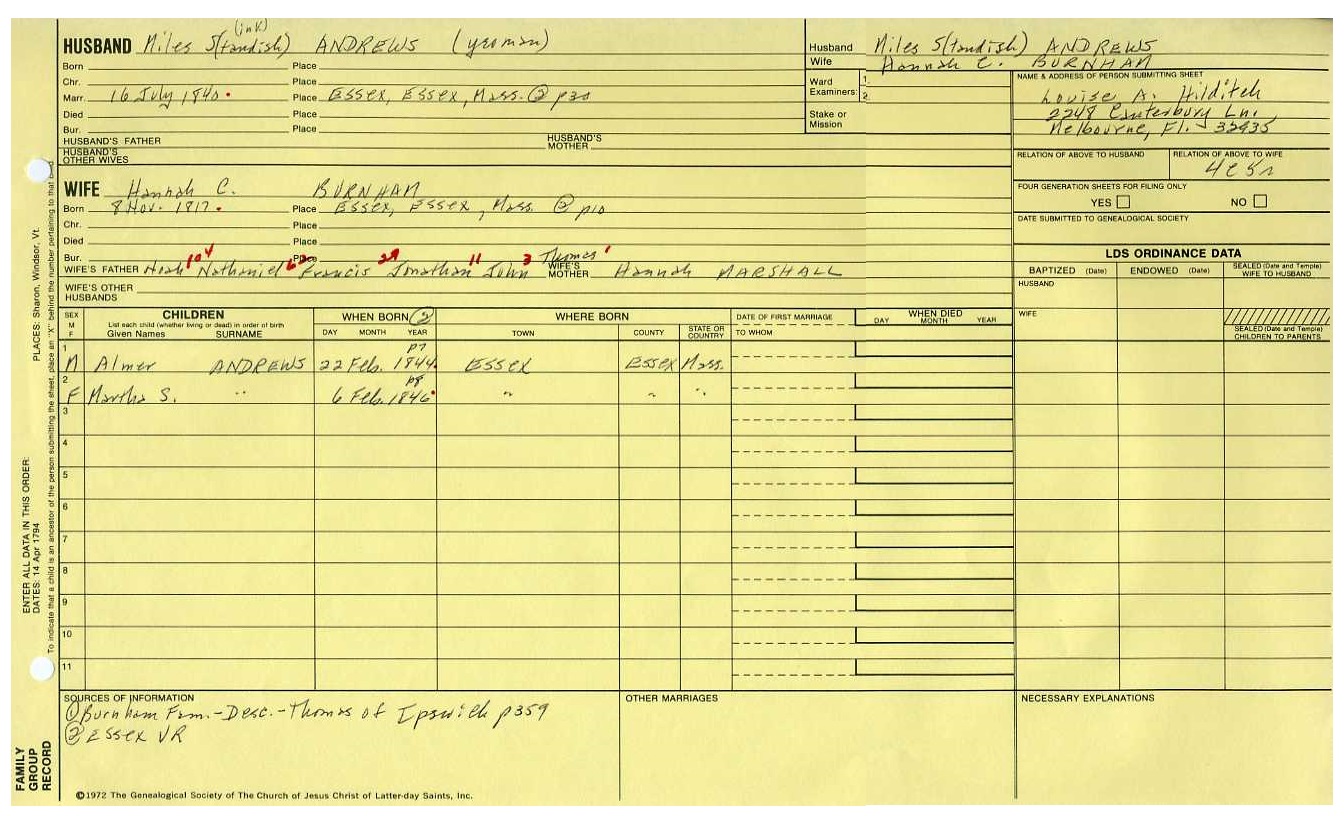 (ink)
HUSBAND Miles S(tandish) ANDREWS (yeoman)
Born Place
Chr. Place
Marr. 16 July 1840. Place Essex, Essex, Mass. ② p20
Died Place
Bur. Place
HUSBAND'S FATHER HUSBAND'S MOTHER
HUSBAND'S OTHER WIVES
WIFE Hannah C. BURNHAM
Born 8 Nov. 1817. Place Essex, Essex, Mass. ② p10
Chr. Place
Died Place
Bur. Place
WIFE'S FATHER Noah 104 Nathaniel Francis 29 Jonathan 11 John 3 Thomas 1 WIFE'S MOTHER Hannah MARSHALL
WIFE'S OTHER HUSBANDS
Husband Miles S(tandish) ANDREWS
Wife Hannah C. BURNHAM
Ward Examiners: 1.
2.
Stake or Mission
NAME & ADDRESS OF PERSON SUBMITTING SHEET
Louise A. Hilditch
2248 Canterbury Ln.
Melbourne, Fl. 32935
RELATION OF ABOVE TO HUSBAND RELATION OF ABOVE TO WIFE
4c5r
FOUR GENERATION SHEETS FOR FILING ONLY
YES NO
DATE SUBMITTED TO GENEALOGICAL SOCIETY
LDS ORDINANCE DATA
BAPTIZED (Date) ENDOWED (Date) SEALED (Date and Temple) WIFE TO HUSBAND
HUSBAND
WIFE
SEALED (Date and Temple) CHILDREN TO PARENTS
SEX M F CHILDREN WHEN BORN ② WHERE BORN DATE OF FIRST MARRIAGE WHEN DIED
List each child (whether living or dead) in order of birth
Given Names SURNAME DAY MONTH YEAR TOWN COUNTY STATE OR COUNTRY TO WHOM DAY MONTH YEAR
p7
1 M Almer ANDREWS 22 Feb. 1844. Essex Essex Mass.
p8
2 F Martha S. " 6 Feb. 1846. " " "
3
4
5
6
7
8
9
10
11
SOURCES OF INFORMATION
① Burnham Fam.-Desc.-Thomas of Ipswich p359
② Essex VR
OTHER MARRIAGES
NECESSARY EXPLANATIONS
©1972 The Genealogical Society of The Church of Jesus Christ of Latter-day Saints, Inc.
FAMILY GROUP RECORD
ENTER ALL DATA IN THIS ORDER:
DATES: 14 Apr 1794
PLACES: Sharon, Windsor, Vt.
To indicate that a child is an ancestor of the person submitting the sheet, place an "X" behind the number pertaining to that